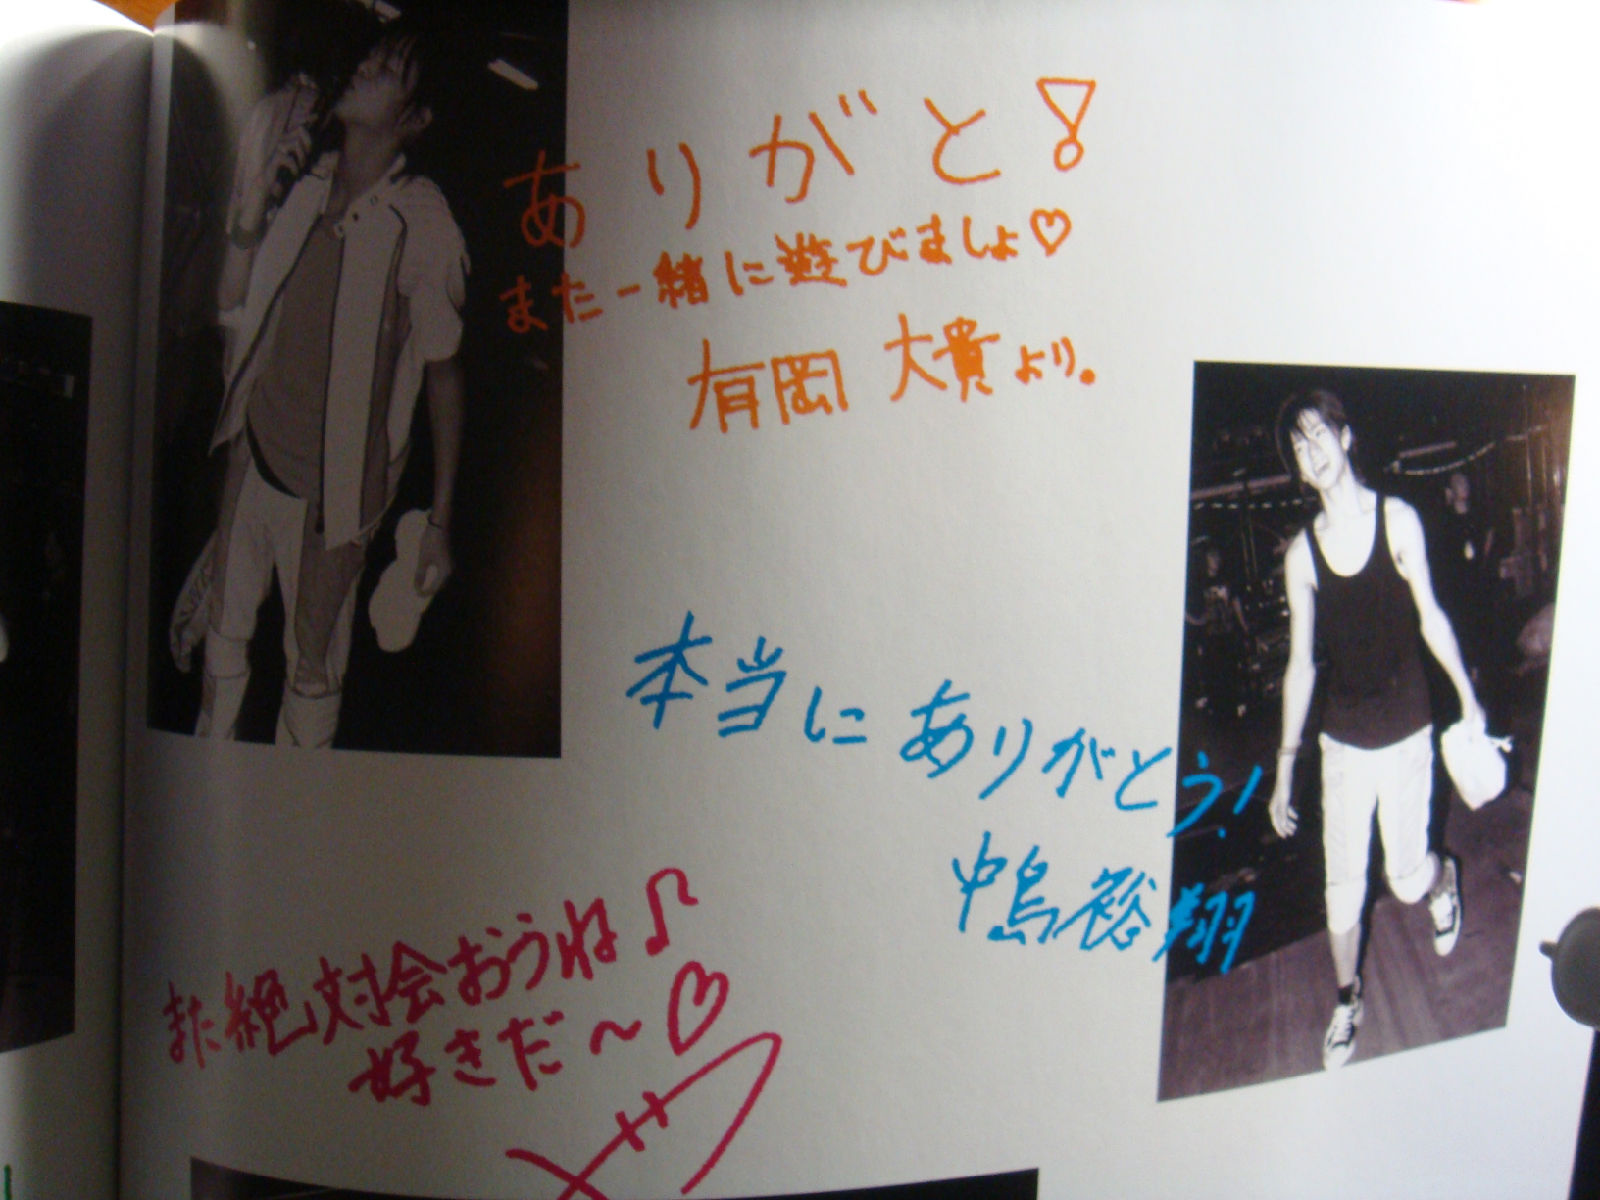 ありがと!
また一緒に遊びましょ♡
有岡 大貴より。
本当に ありがとう!
中島裕翔
また絶対会おうね♪
好きだ〜♡